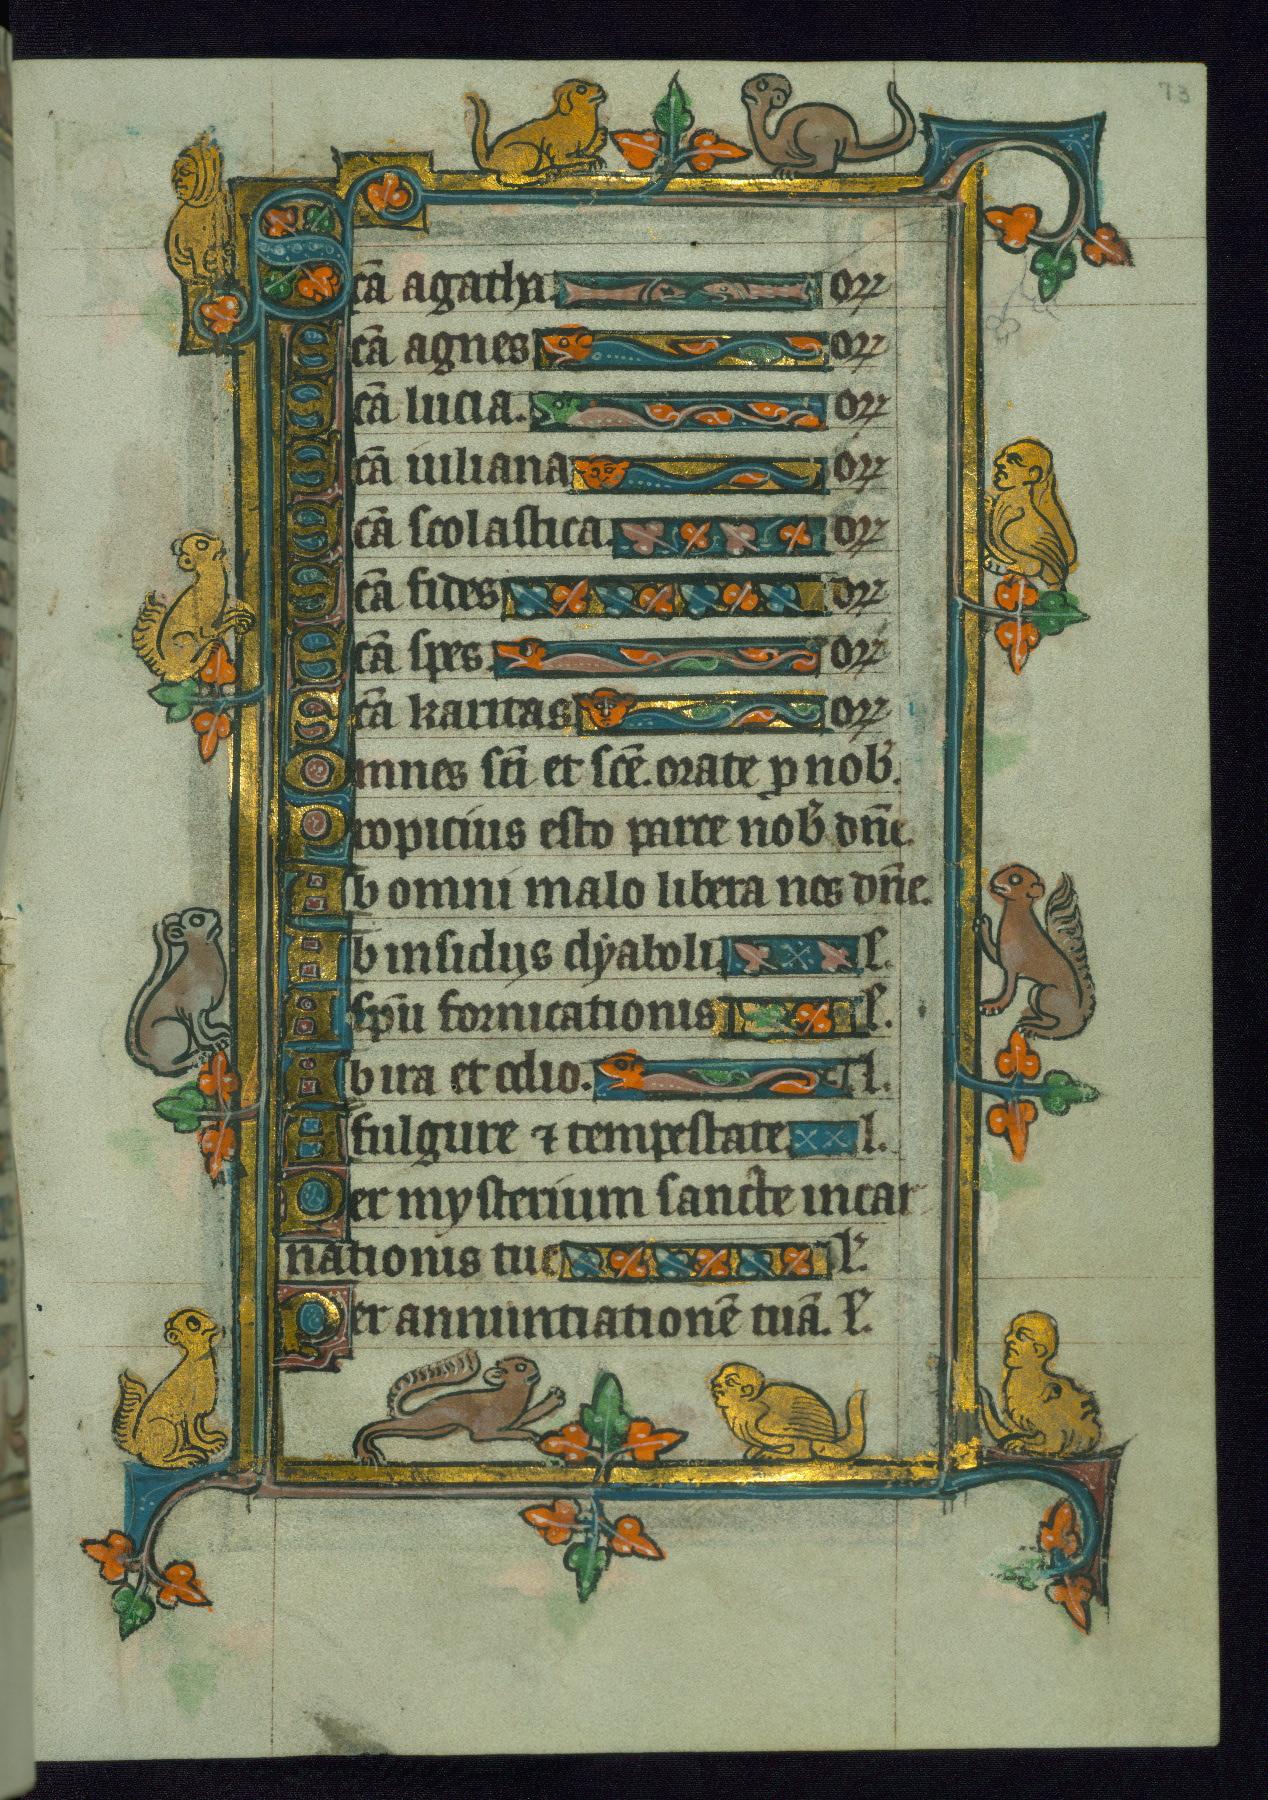 73
Scā agatha or
Scā agnes or
Scā lucia. or
Scā iuliana or
Scā scolastica. or
Scā fides or
Scā spes. or
Scā karitas or
Omnes sc̄i et sc̄e. orate p nob̄.
Propicius esto parce nob̄ dn̄e.
Ab omni malo libera nos dn̄e.
Ab insidijs dyaboli. l.
A sp̄u fornicationis l.
Ab ira et odio. l.
A fulgure ⁊ tempestate. l.
Per mysterium sancte incar
nationis tue l.
Per annuntiationē tuā. l.